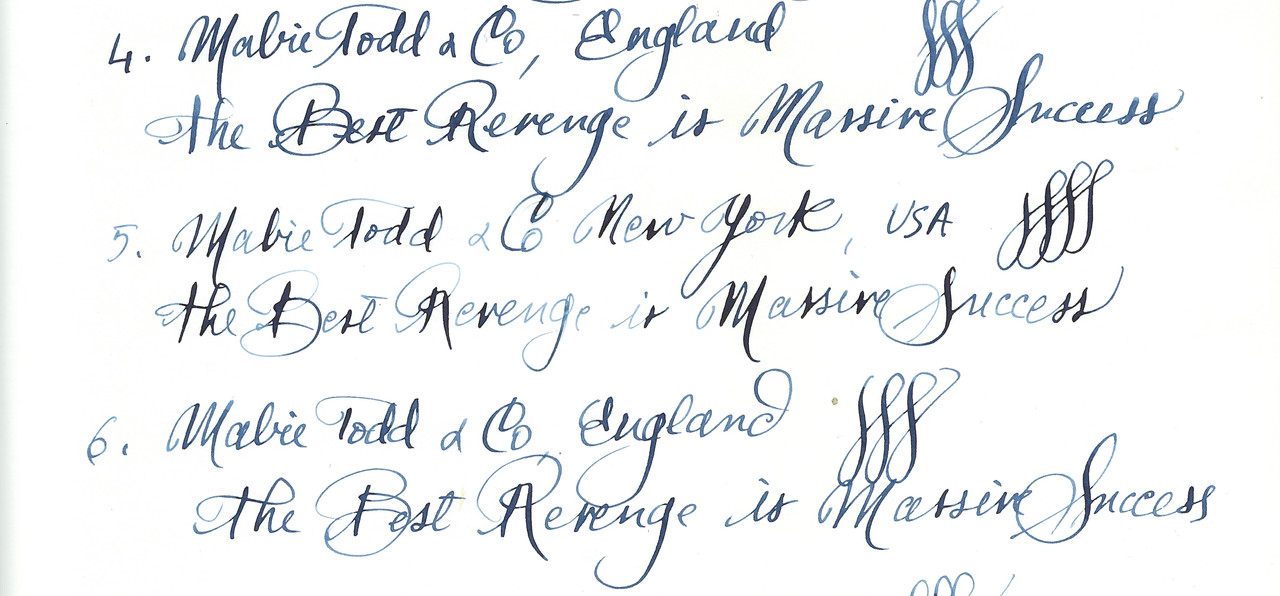 4. Mabie Todd & Co, England
the Best Revenge is Massive Success
5. Mabie Todd & Co New York, USA
the Best Revenge is Massive Success
6. Mabie Todd & Co, England
the Best Revenge is Massive Success